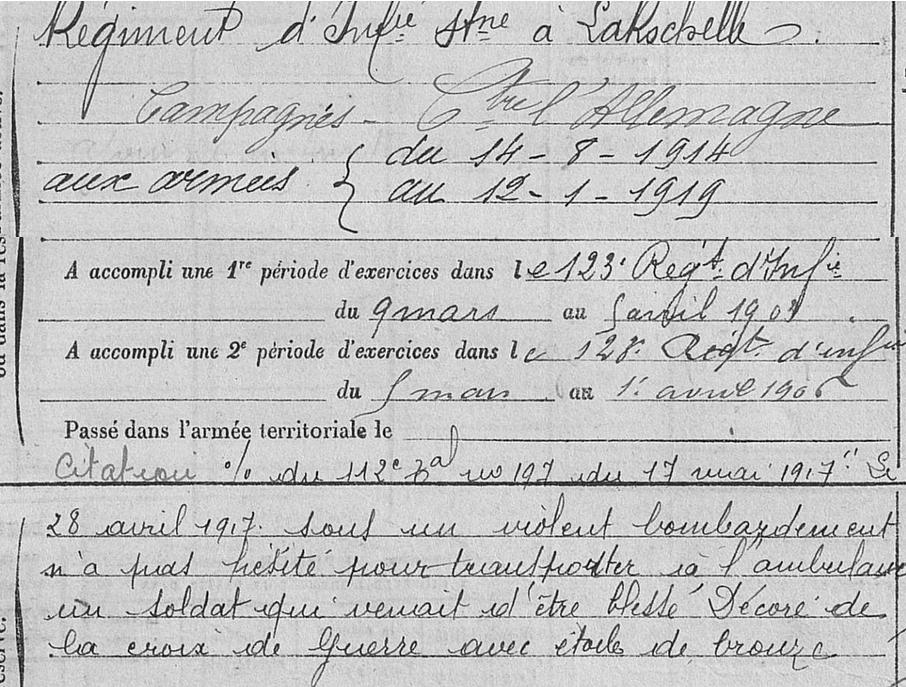 Régiment d'Infie Stne à La Rochelle.
Campagnes - Ctre l'Allemagne
aux armées { du 14 - 8 - 1914
au 12 - 1 - 1919
A accompli une 1re période d'exercices dans le 123e Regt. d'Infie
du 9 mars au 5 avril 1908
A accompli une 2e période d'exercices dans le 128e Régt. d'infie
du 5 mars au 1er avril 1906
Passé dans l'armée territoriale le
Citation % du 112e Bal no 197 du 17 mai 1917 " Le
28 avril 1917. sous un violent bombardement
n'a pas hésité pour transporter à l'ambulance
un soldat qui venait d'être blessé Décoré de
la croix de Guerre avec étoile de bronze
ou dans la rés
éserve.